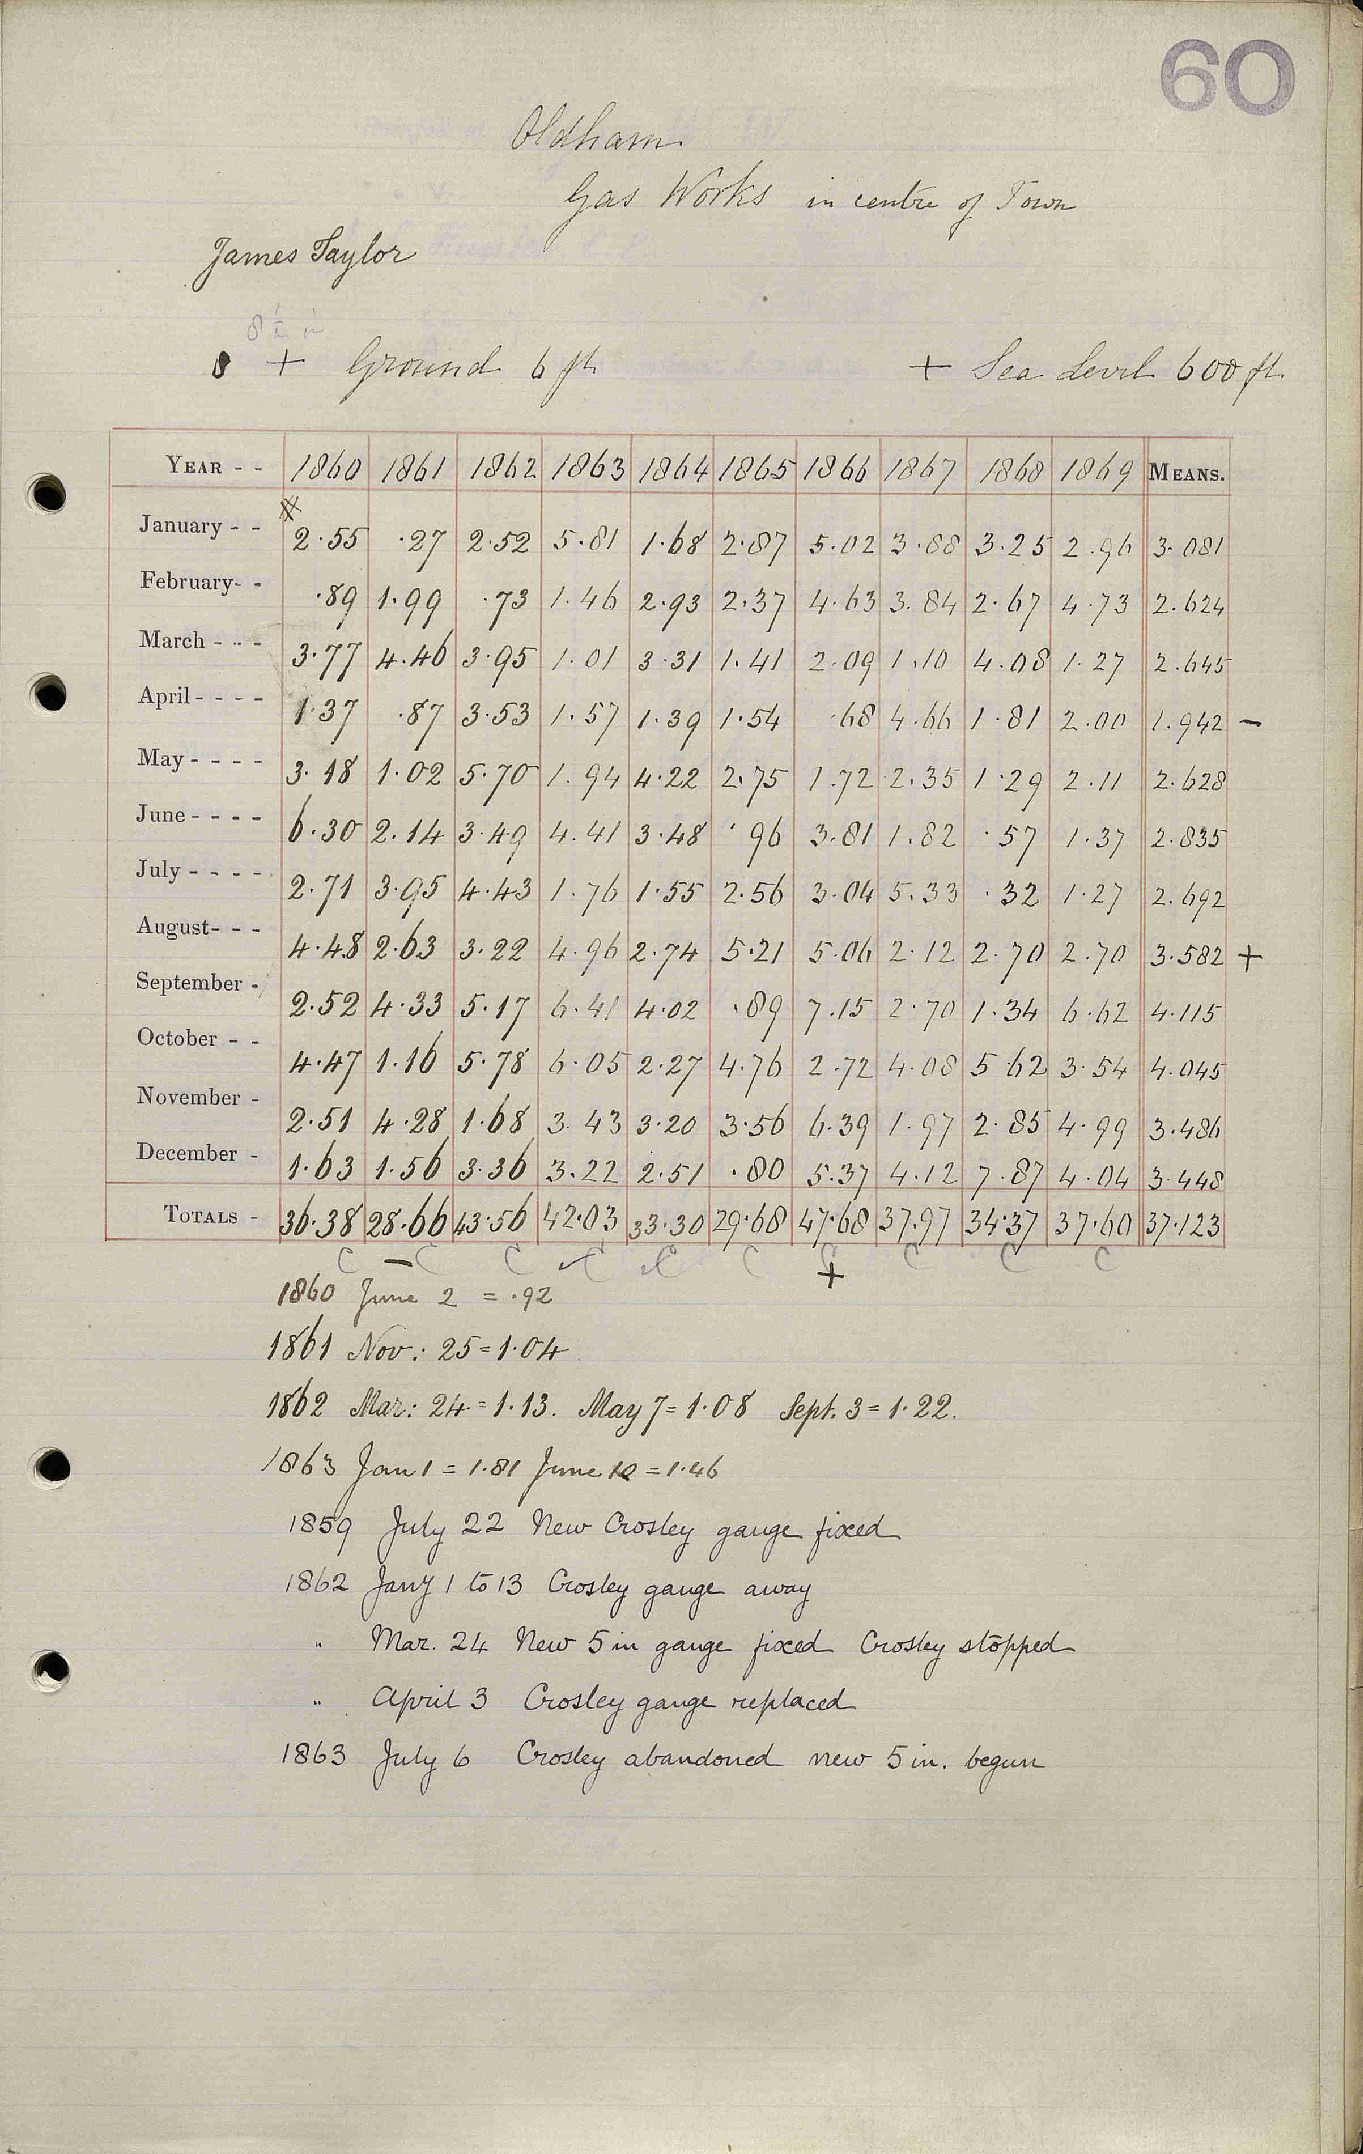 60
Oldham
Gas Works in centre of Town
James Taylor
8½ in
8 + Ground 6 ft + Sea Level 600 ft.
YEAR - - 1860 1861 1862 1863 1864 1865 1866 1867 1868 1869 MEANS.
January - - 2.55 .27 2.52 5.81 1.68 2.87 5.02 3.88 3.25 2.96 3.081
February- - .89 1.99 .73 1.46 2.93 2.37 4.63 3.84 2.67 4.73 2.624
March - - - 3.77 4.46 3.95 1.01 3.31 1.41 2.09 1.10 4.08 1.27 2.645
April - - - - 1.37 .87 3.53 1.57 1.39 1.54 .68 4.66 1.81 2.00 1.942 -
May - - - - 3.18 1.02 5.70 1.94 4.22 2.75 1.72 2.35 1.29 2.11 2.628
June - - - - 6.30 2.14 3.49 4.41 3.48 .96 3.81 1.82 .57 1.37 2.835
July - - - - 2.71 3.95 4.43 1.76 1.55 2.56 3.04 5.33 .32 1.27 2.692
August- - - 4.48 2.63 3.22 4.96 2.74 5.21 5.06 2.12 2.70 2.70 3.582 +
September - 2.52 4.33 5.17 6.41 4.02 .89 7.15 2.70 1.34 6.62 4.115
October - - 4.47 1.16 5.78 6.05 2.27 4.76 2.72 4.08 5.62 3.54 4.045
November - 2.51 4.28 1.68 3.43 3.20 3.56 6.39 1.97 2.85 4.99 3.486
December - 1.63 1.56 3.36 3.22 2.51 .80 5.37 4.12 7.87 4.04 3.448
TOTALS - 36.38 28.66 43.56 42.03 33.30 29.68 47.68 37.97 34.37 37.60 37.123
C - C C C C C C + C C C
1860 June 2 = .92
1861 Nov: 25 = 1.04
1862 Mar: 24 = 1.13. May 7 = 1.08 Sept. 3 = 1.22.
1863 Jan 1 = 1.81 June 10 = 1.46
1859 July 22 New Crosley gauge fixed
1862 Jany 1 to 13 Crosley gauge away
" Mar. 24 New 5 in gauge fixed Crosley stopped
" April 3 Crosley gauge replaced
1863 July 6 Crosley abandoned new 5 in. begun